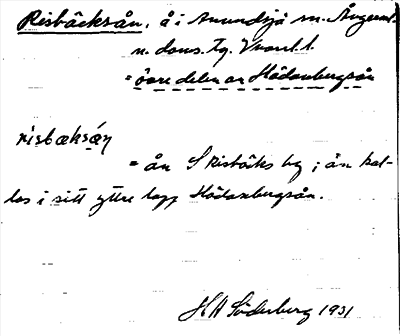 Risbäcksån, å i Anundsjö sn. Ångerml.
n. doms. tg.
= övre delen av Hädanbergsån
risbæksá̧ɳ
= ån S Risbäcks by; ån kal-
las i sitt yttre lopp Hädanbergsån.
H A Söderberg 1931